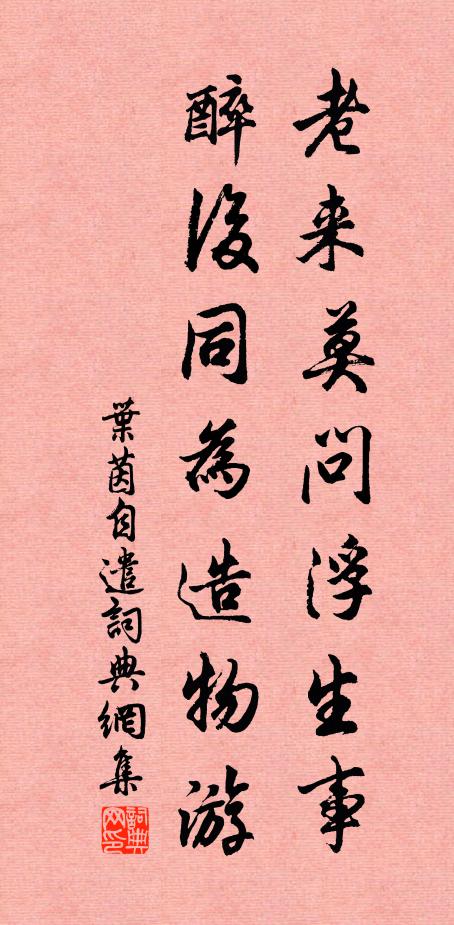 老来莫問浮生事
醉後同為造物游
葉茵自遣詞典網集
詞典
网印